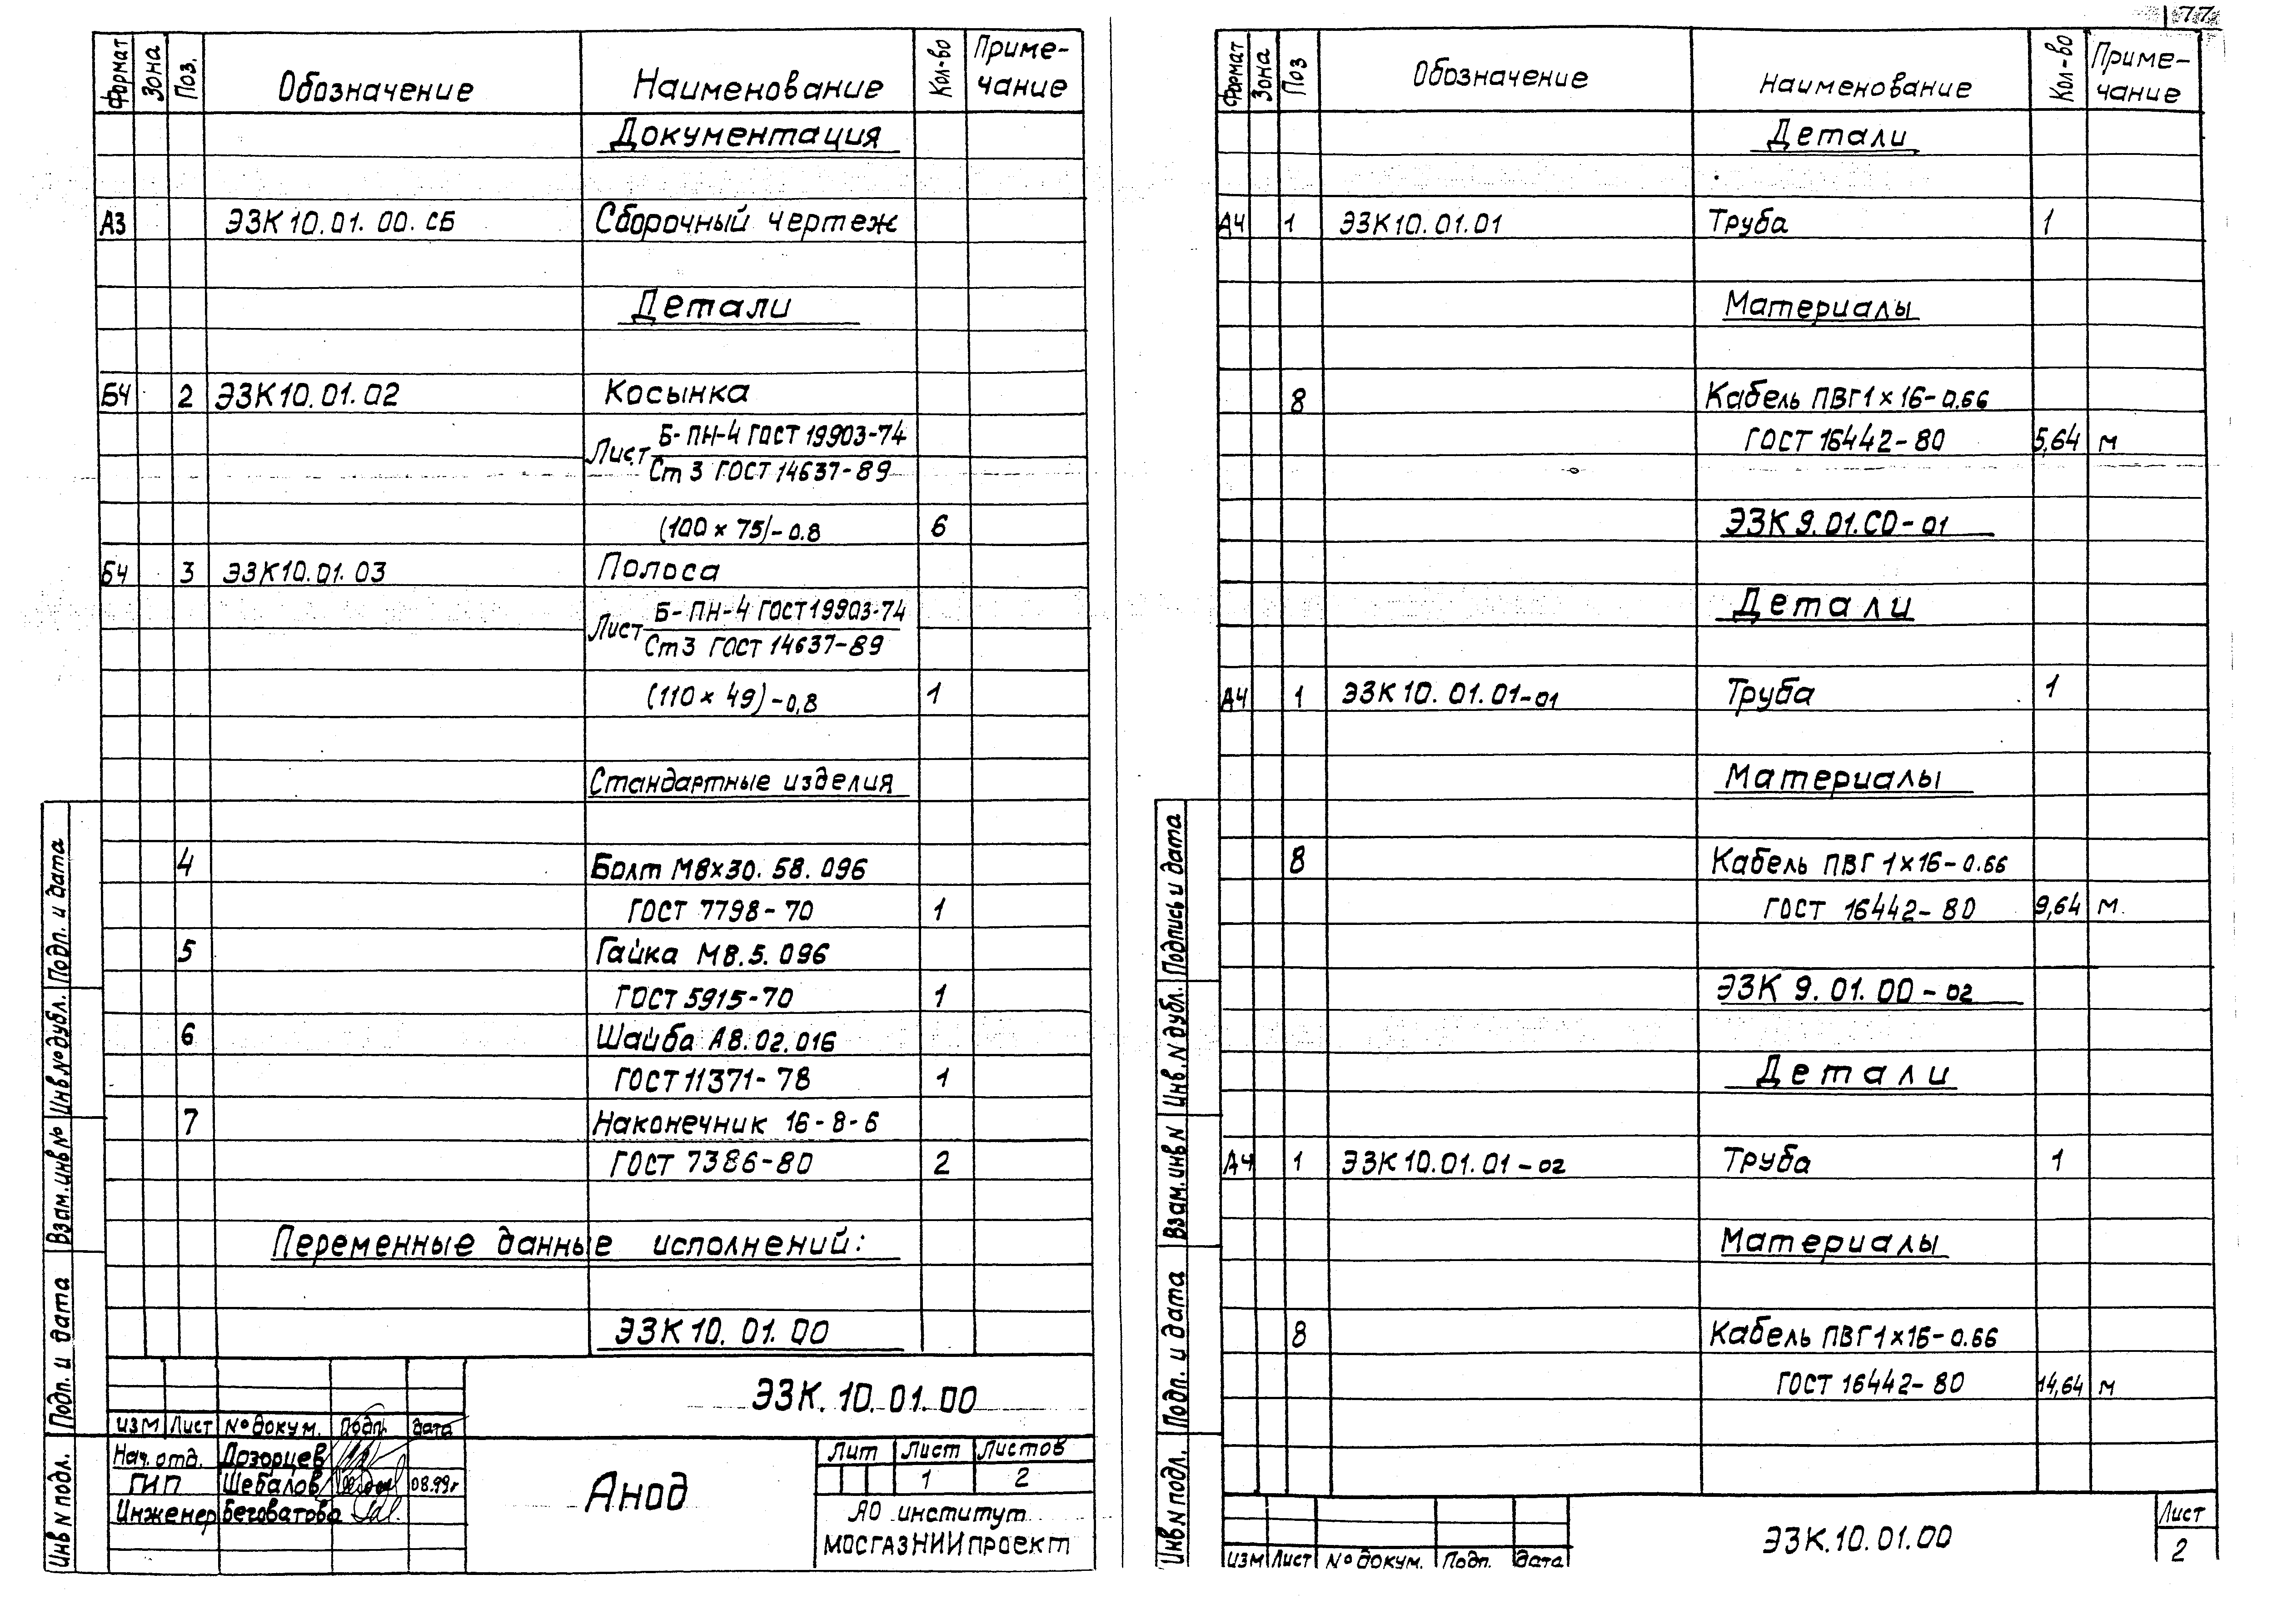 Формат Зона Поз. Обозначение Наименование Кол-во Приме-
чание
Документация
А3 ЭЗК10.01.00.СБ Сборочный чертеж
Детали
БЧ 2 ЭЗК10.01.02 Косынка
Лист Б-ПН-4 ГОСТ 19903-74
Ст 3 ГОСТ 14637-89
(100 х 75)-0.8 6
БЧ 3 ЭЗК10.01.03 Полоса
Лист Б-ПН-4 ГОСТ 19903-74
Ст3 ГОСТ 14637-89
(110 х 49)-0,8 1
Стандартные изделия
4 Болт М8х30.58.096
ГОСТ 7798-70 1
5 Гайка М8.5.096
ГОСТ 5915-70 1
6 Шайба А8.02.016
ГОСТ 11371-78 1
7 Наконечник 16-8-6
ГОСТ 7386-80 2
Переменные данные исполнений:
ЭЗК10.01.00
ЭЗК.10.01.00
изм Лист № докум. Подп. дата
Нач. отд. Дозорцев
ГИП Шебалов 08.99г
Инженер Беговатова
Анод
Лит Лист Листов
1 2
АО институт
МОСГАЗНИИпроект
Подп. и дата
Инв № дубл.
Взам. инв №
Подп. и дата
Инв N подл.
77
Формат Зона Поз Обозначение Наименование Кол-во Приме-
чание
Детали
А4 1 ЭЗК10.01.01 Труба 1
Материалы
8 Кабель ПВГ1х16-0.66
ГОСТ 16442-80 5,64 м
ЭЗК 9.01.СО-01
Детали
А4 1 ЭЗК10.01.01-01 Труба 1
Материалы
8 Кабель ПВГ 1х16-0.66
ГОСТ 16442-80 9,64 м.
ЭЗК 9.01.00-02
Детали
А4 1 ЭЗК10.01.01-02 Труба 1
Материалы
8 Кабель ПВГ1х16-0.66
ГОСТ 16442-80 14,64 м
изм Лист № докум. Подп. дата
ЭЗК.10.01.00
Лист
2
Подпись и дата
Инв. N дубл.
Взам. инв N
Подп. и дата
Инв N подл.